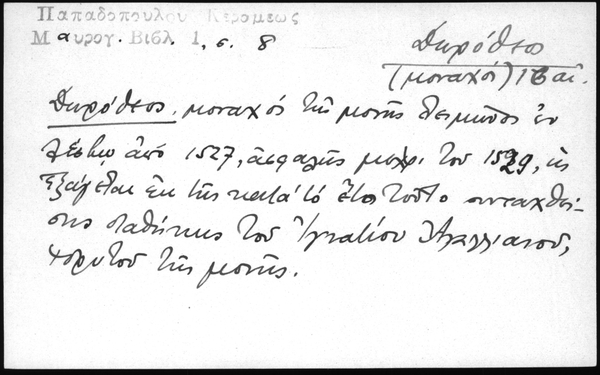 Παπαδοπούλου Κεραμέως
Μαυρογ. Βιβλ. 1, σ. 8
Δωρόθεος
(μοναχός) 16 αἰ.
Δωρόθεος, μοναχός τῆς μονῆς Λειμῶνος ἐν
Λέσβῳ ἀπό 1527, ἀσφαλῆς μεχρι του 1529, ὡς
ἐξάγεται ἐκ τῆς κατά τό ἔτος τοῦτο συνταχθεί-
σης διαθήκης τοῦ Ἰγνατίου Ἀγαλλιανοῦ,
τῆς μονῆς.